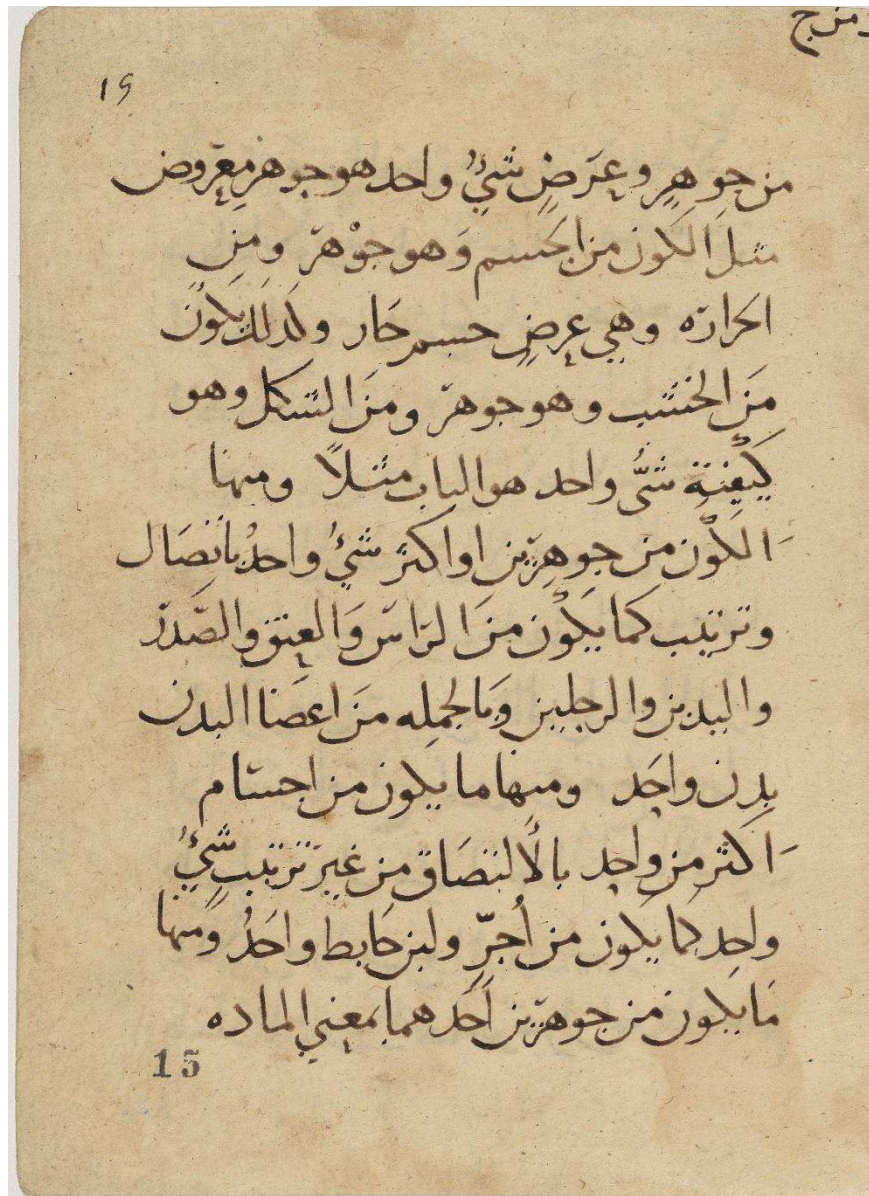 ومزج
١٥
من جوهرٍ وعَرَضٍ شيءٌ واحد هو جوهر معروض
مثل الكون من الجسم وَهو جوْهر ومن
الحَرارَه وهي عرضٍ جسم حَار وكذلك يكون
مَن الخشب وهو جوهر ومن الشكل وهو
كَيْفِية شىُّ واحد هو الباب مثلاً ومنها
الكَوْن من جوهرَين او اكثر شيءُ واحدُ باتصَال
وترتيب كما يكَوْن من الرَاس وَالعنق والصَدر
واليدين والرجلين وَبالجمله مَن اعضَا البدن
بدن واحَد ومنها ما يكون من اجسَام
اَكثر من واحِد بالألتصَاق من غير ترتيبٍ شيءُ
واحد كما يكون من أجرّ ولبن حَايط واحَدُ وَمنها
مَا يكون من جوهرَين اَحَدهما بمعني الماده
15